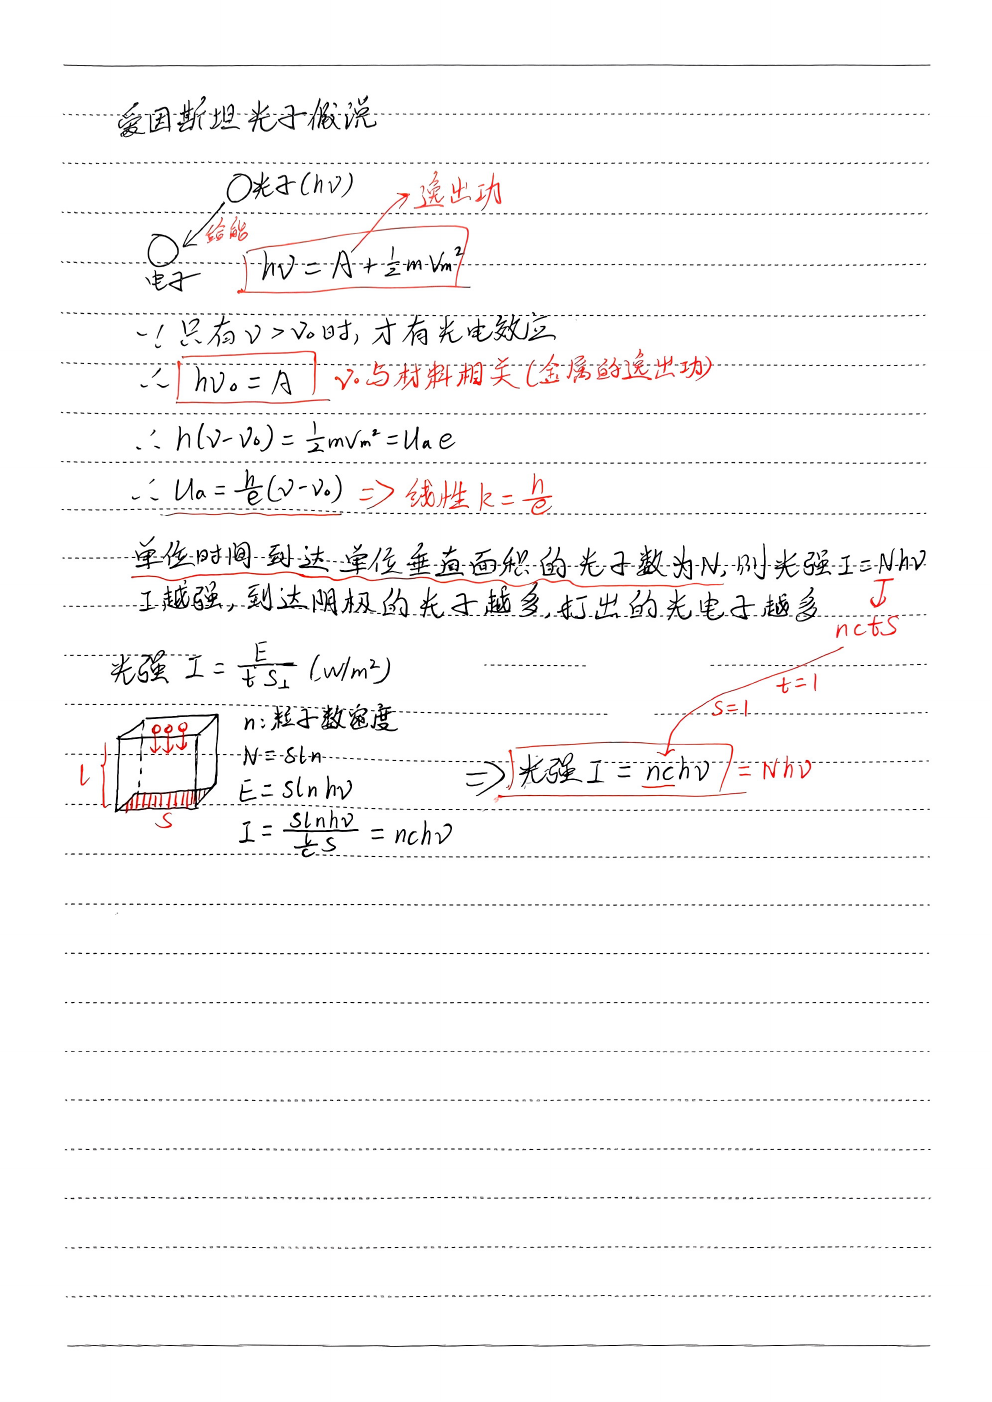 爱因斯坦光子假说
光子(hν)
逸出功
给能
电子
hν = A + ½m·Vm²
∵ 只有ν > ν₀时, 才有光电效应
∴ hν₀ = A ν₀与材料相关(金属的逸出功)
∴ h(ν-ν₀) = ½mVm² = Ua e
∴ Ua = h/e(ν-ν₀) => 线性 k = h/e
单位时间到达单位垂直面积的光子数为N, 则光强I = Nhν
I越强, 到达阴极的光子越多, 打出的光电子越多
nctS
光强 I = E/(t S⊥) (W/m²)
t=1
S=1
n: 粒子数密度
N = Sln
l
S
E = Slnhν
=> 光强 I = nchν = Nhν
I = Slnhν/(l/c S) = nchν